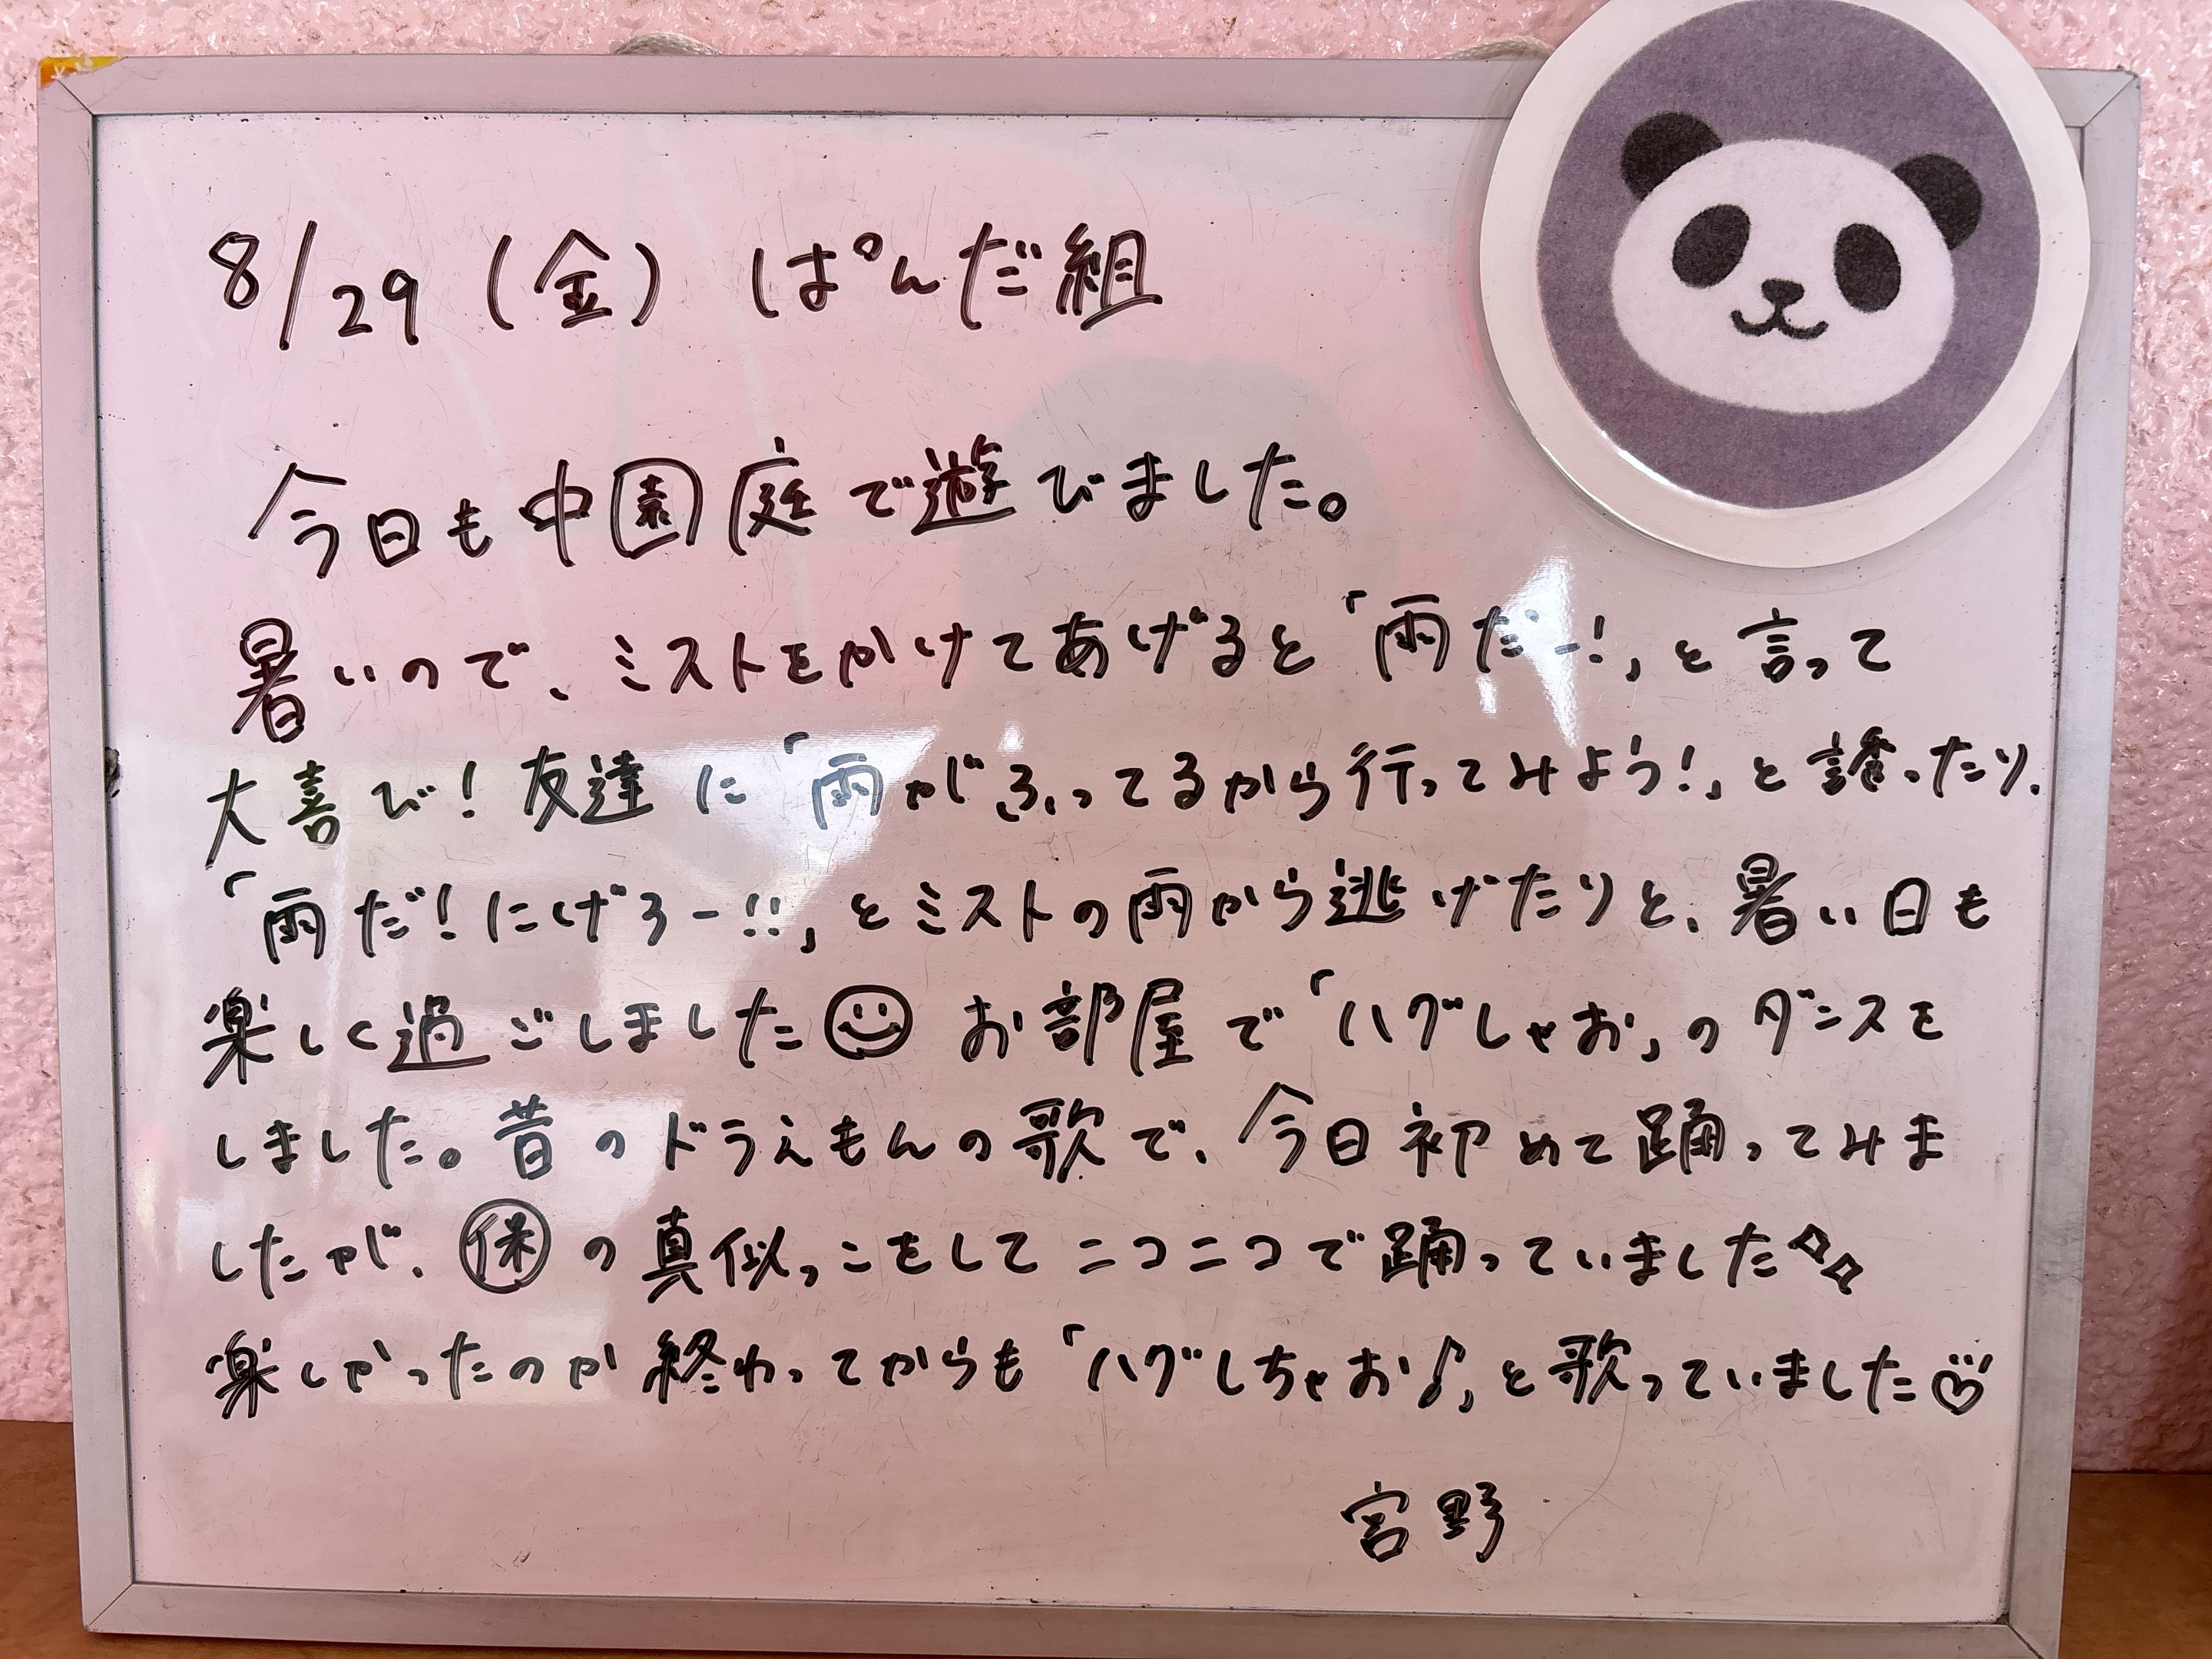 8/29（金） ぱんだ組
今日も中園庭で遊びました。
暑いので、ミストをかけてあげると「雨だー!」と言って
大喜び!友達に「雨がふってるから行ってみよう!」と誘ったり、
「雨だ!にげろー!!」とミストの雨から逃げたりと、暑い日も
楽しく過ごしました☺ お部屋で「ハグしゃお」のダンスを
しました。昔のドラえもんの歌で、今日初めて踊ってみま
したが、㊡の真似っこをしてニコニコで踊っていました✧✧
楽しかったのか終わってからも「ハグしちゃお♪」と歌っていました♡
宮野